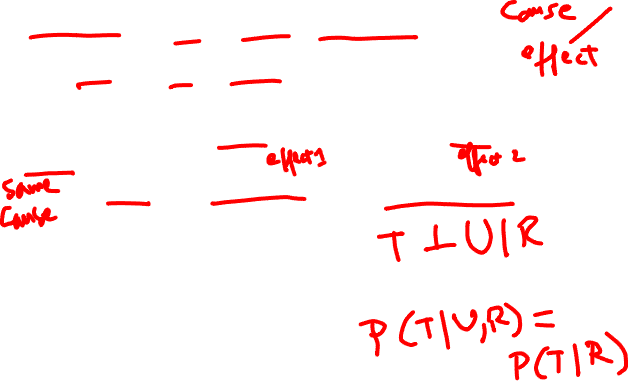 Cause /
effect
effect1
effect 2
Same
Cause
T ⊥ U | R
P(T|U,R) =
P(T|R)